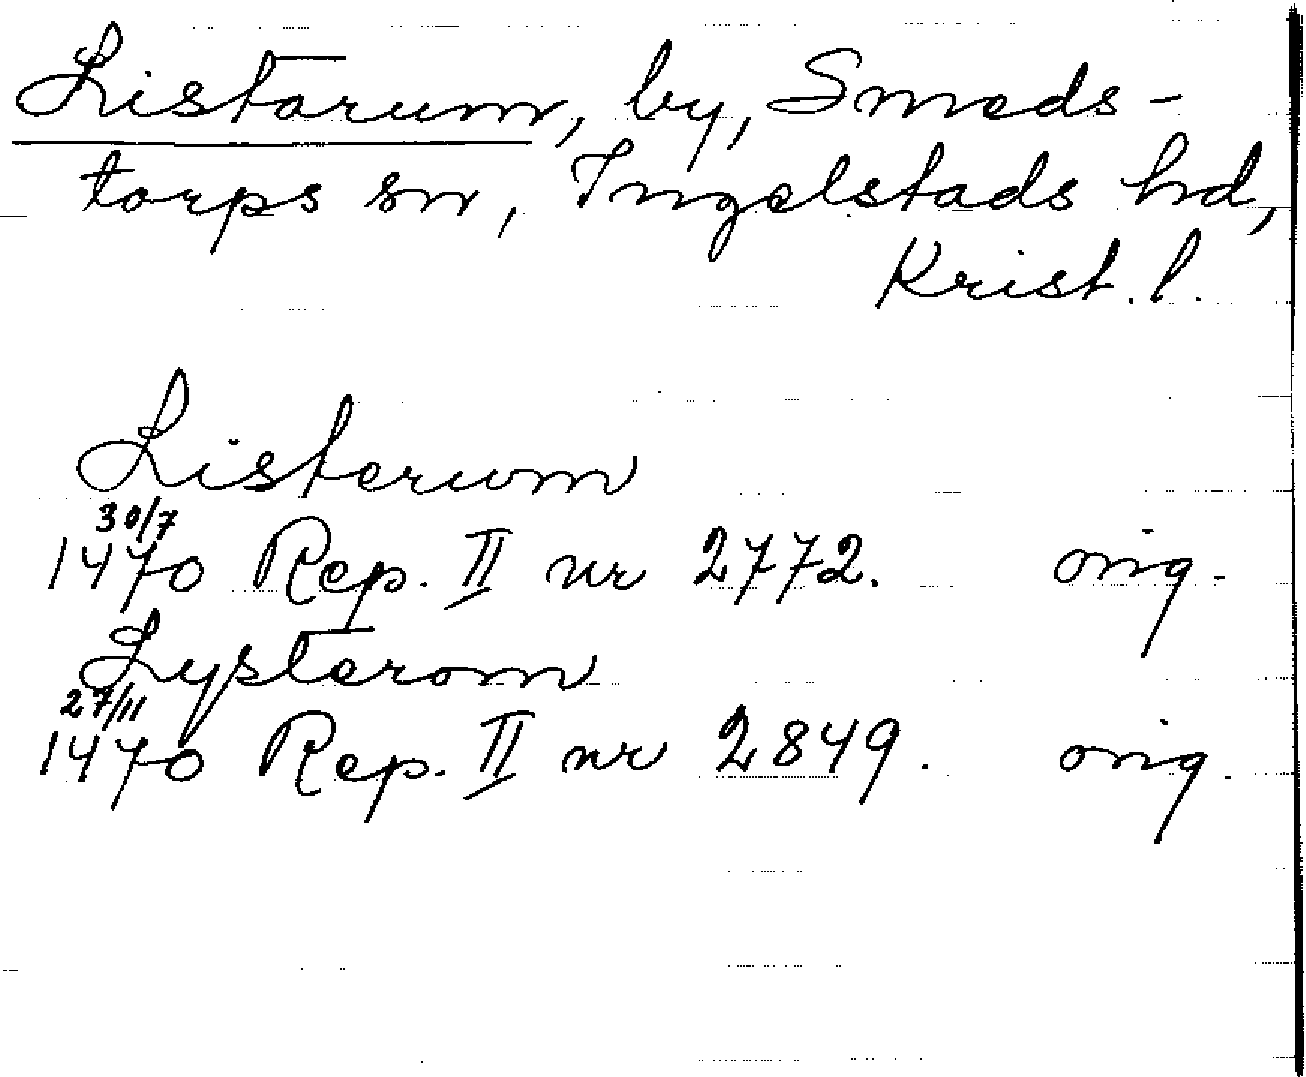 Listarum, by, Smeds-
torps sn, Ingelstads hd,
Krist. l.
Listerum
30/7
1470 Rep. II nr 2772. orig.
Lysterom
27/11
1470 Rep. II nr 2849. orig.